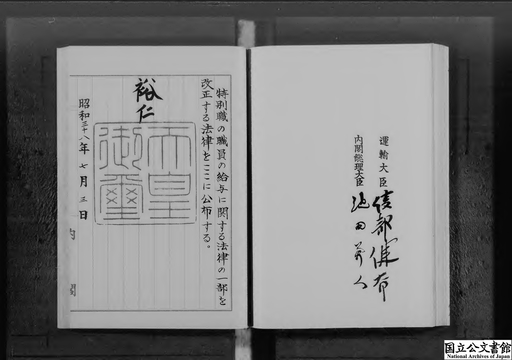 特別職の職員の給与に関する法律の一部を
改正する法律をここに公布する。
裕仁
天皇
御璽
昭和三十八年七月三日
運輸大臣
綾部健太郎
内閣総理大臣
池田勇人
国立公文書館
National Archives of Japan